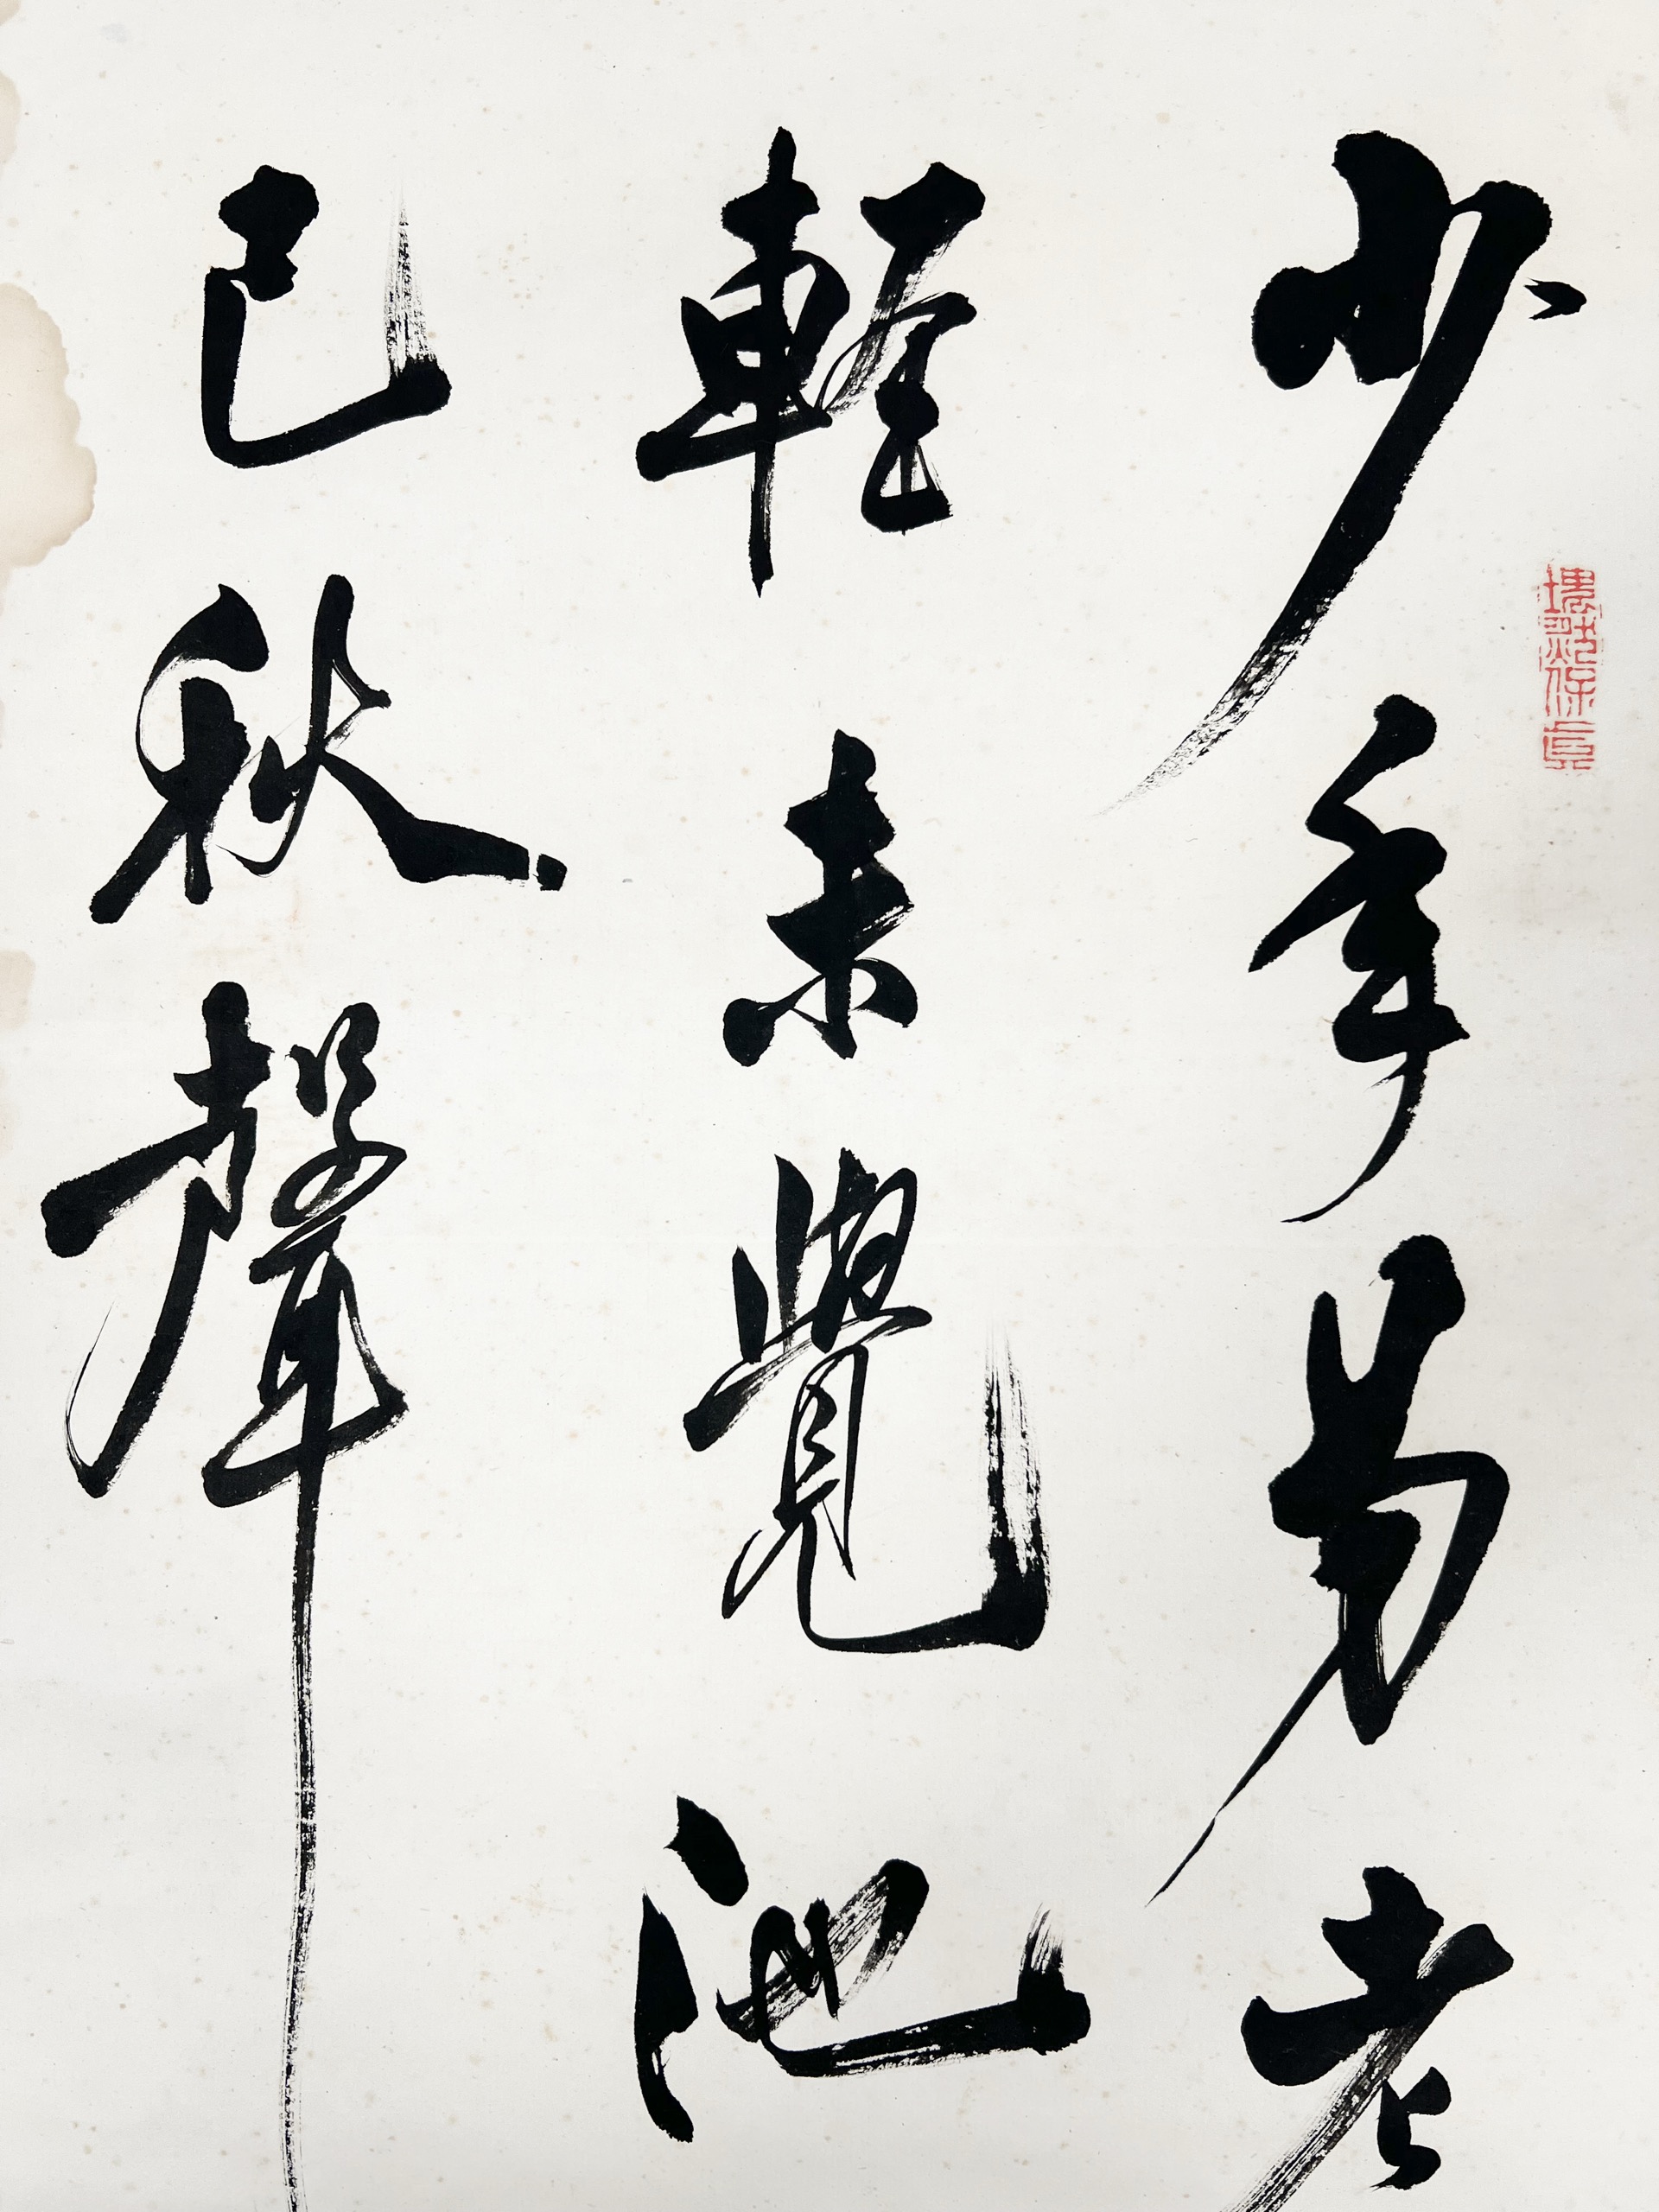 少年易老
輕未覺池
已秋聲